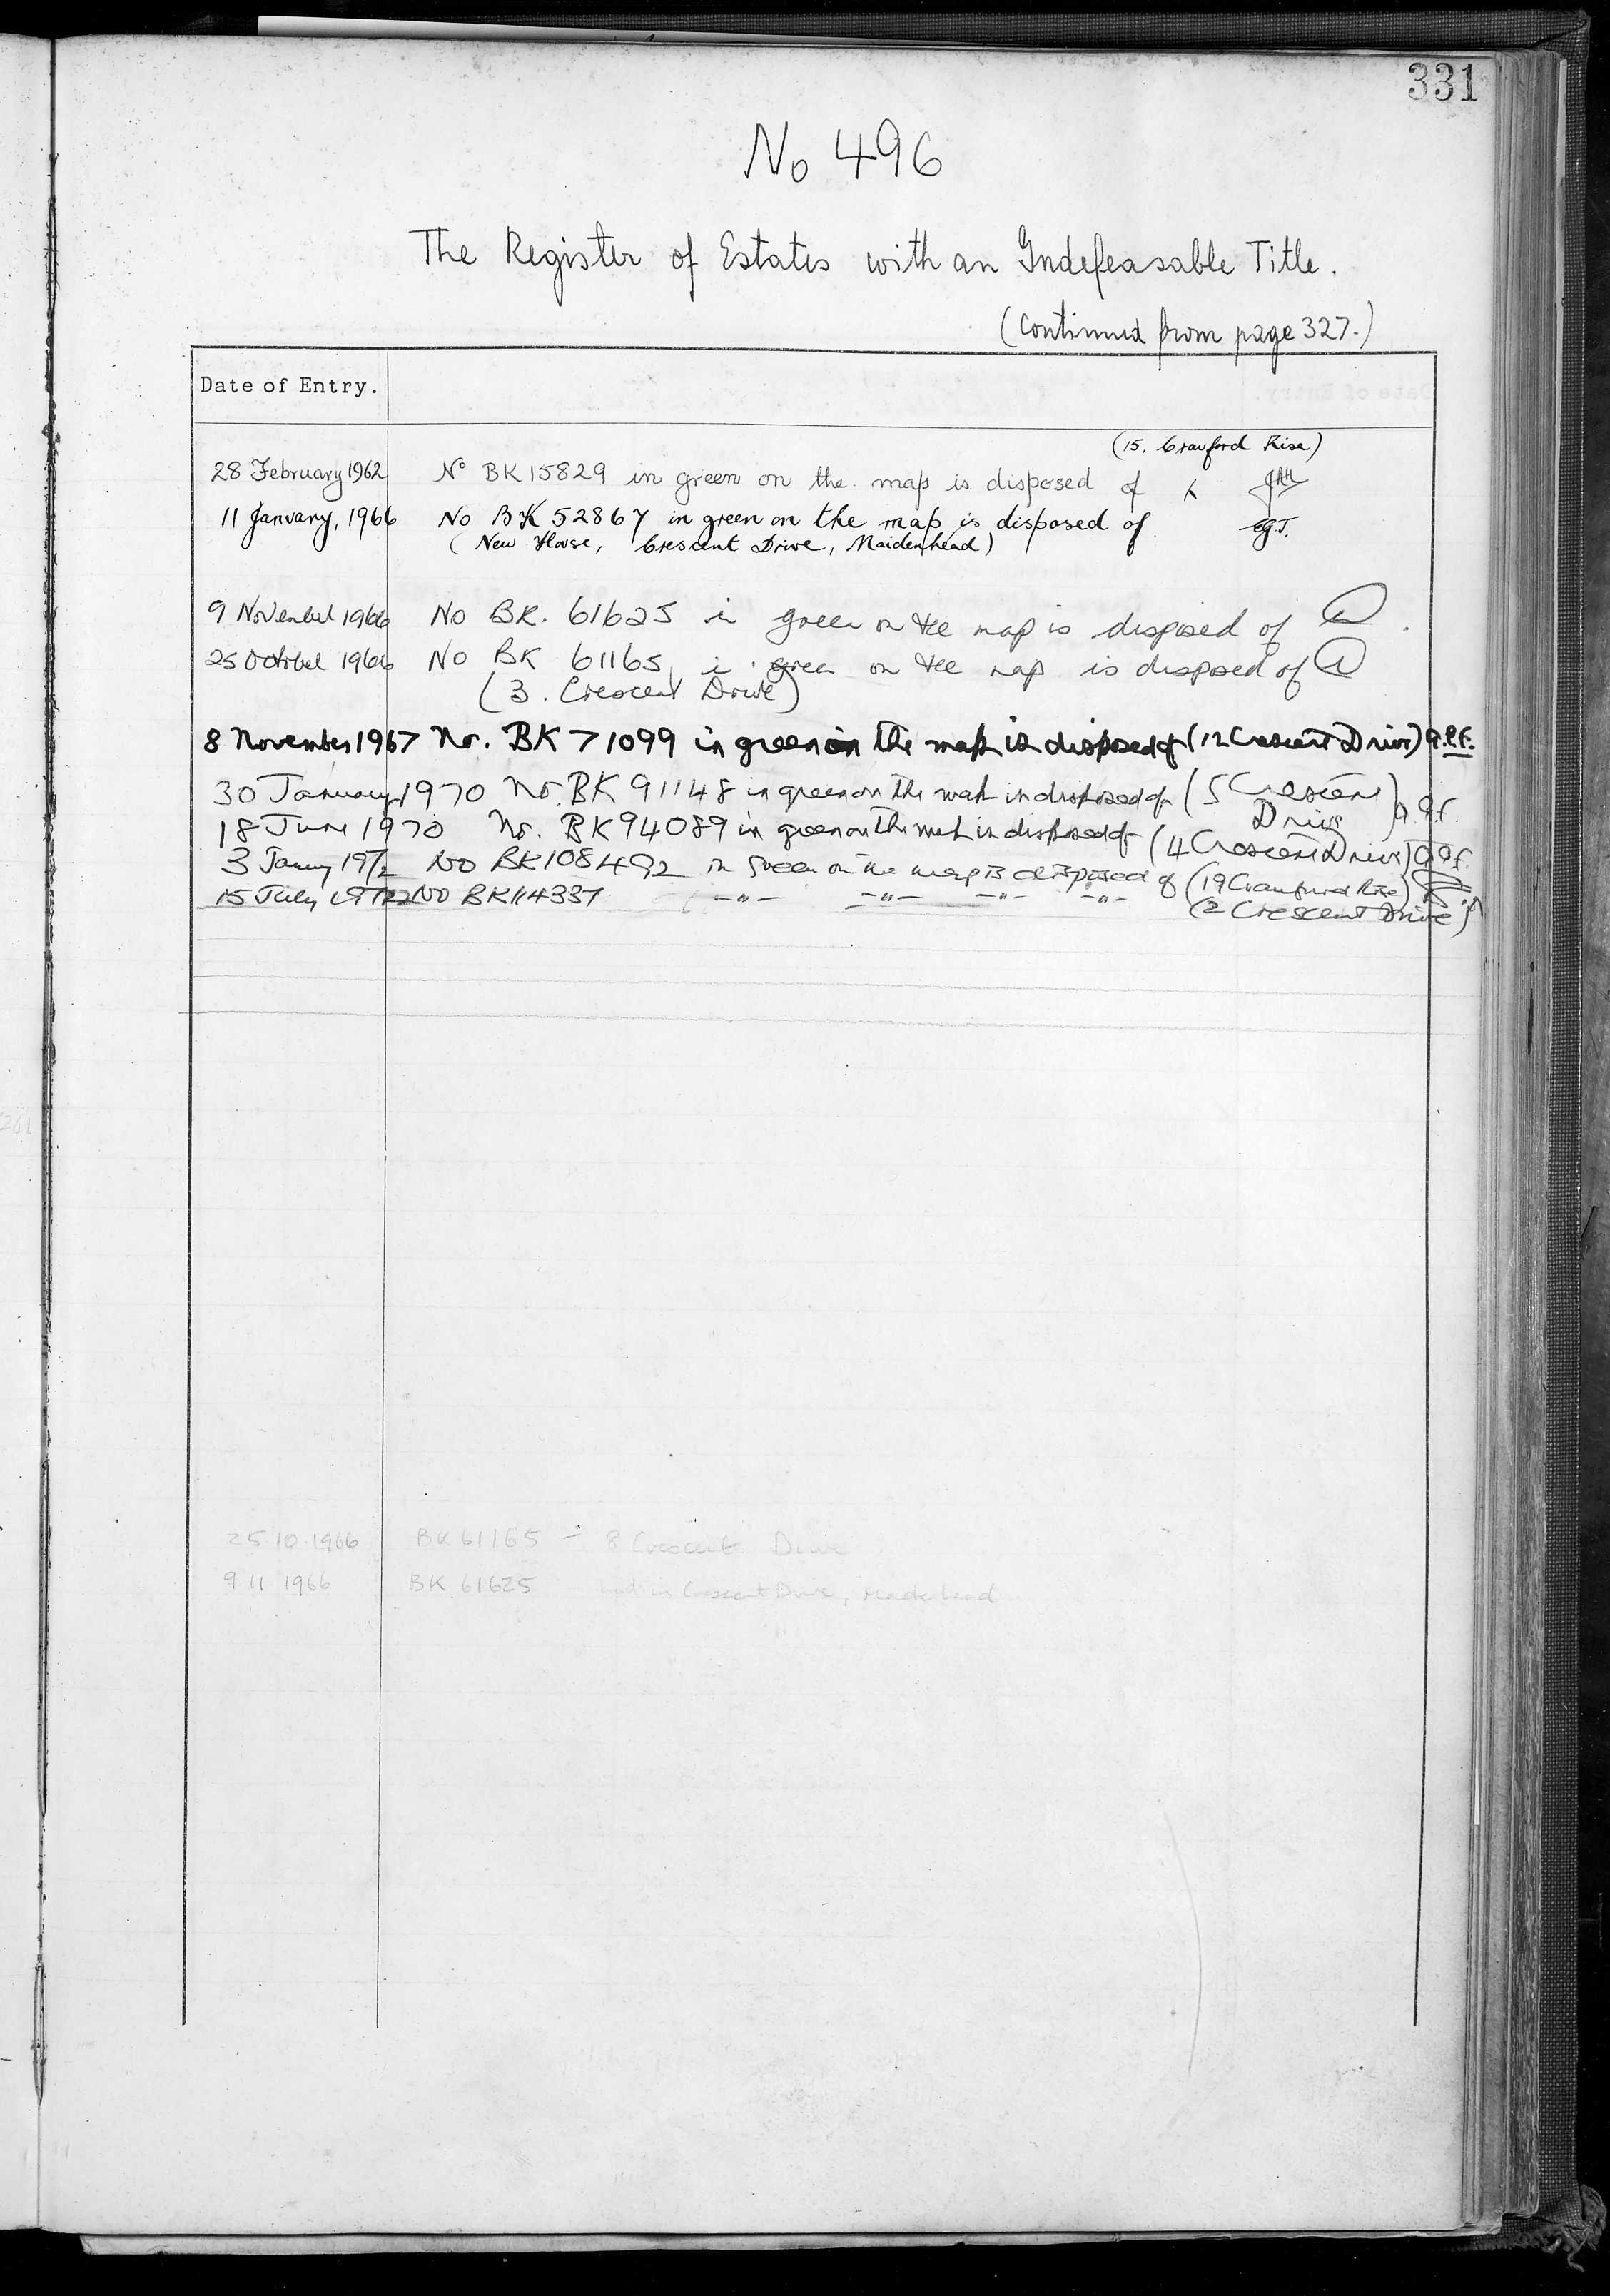 331
No 496
The Register of Estates with an Indefeasable Title.
(Continued from page 327.)
Date of Entry.
(15, Crauford Rise)
28 February 1962 No BK15829 in green on the map is disposed of
11 January, 1966 No BK 52867 in green on the map is disposed of E.G.T.
(New House, Crescent Drive, Maidenhead)
9 November 1966 No BK. 61625 in green on the map is disposed of
25 October 1966 No BK 61165 in green on the map is disposed of
(3. Crescent Drive)
8 November 1967 No. BK 71099 in green on the map is disposed of (12 Crescent Drive) A.P.F.
30 January 1970 No. BK 91148 in green on the map is disposed of (5 Crescent Drive)
18 June 1970 No. BK94089 in green on the map is disposed of (4 Crescent Drive)
3 January 1972 No BK108492 in green on the map is disposed of (19 Craufurd Rise)
15 July 1972 No BK114337 -"- -"- -"- -"- (2 Crescent Drive)
25.10.1966 BK61165 - 8 Crescent Drive
9 11 1966 BK 61625 in Crescent Drive, Maidenhead